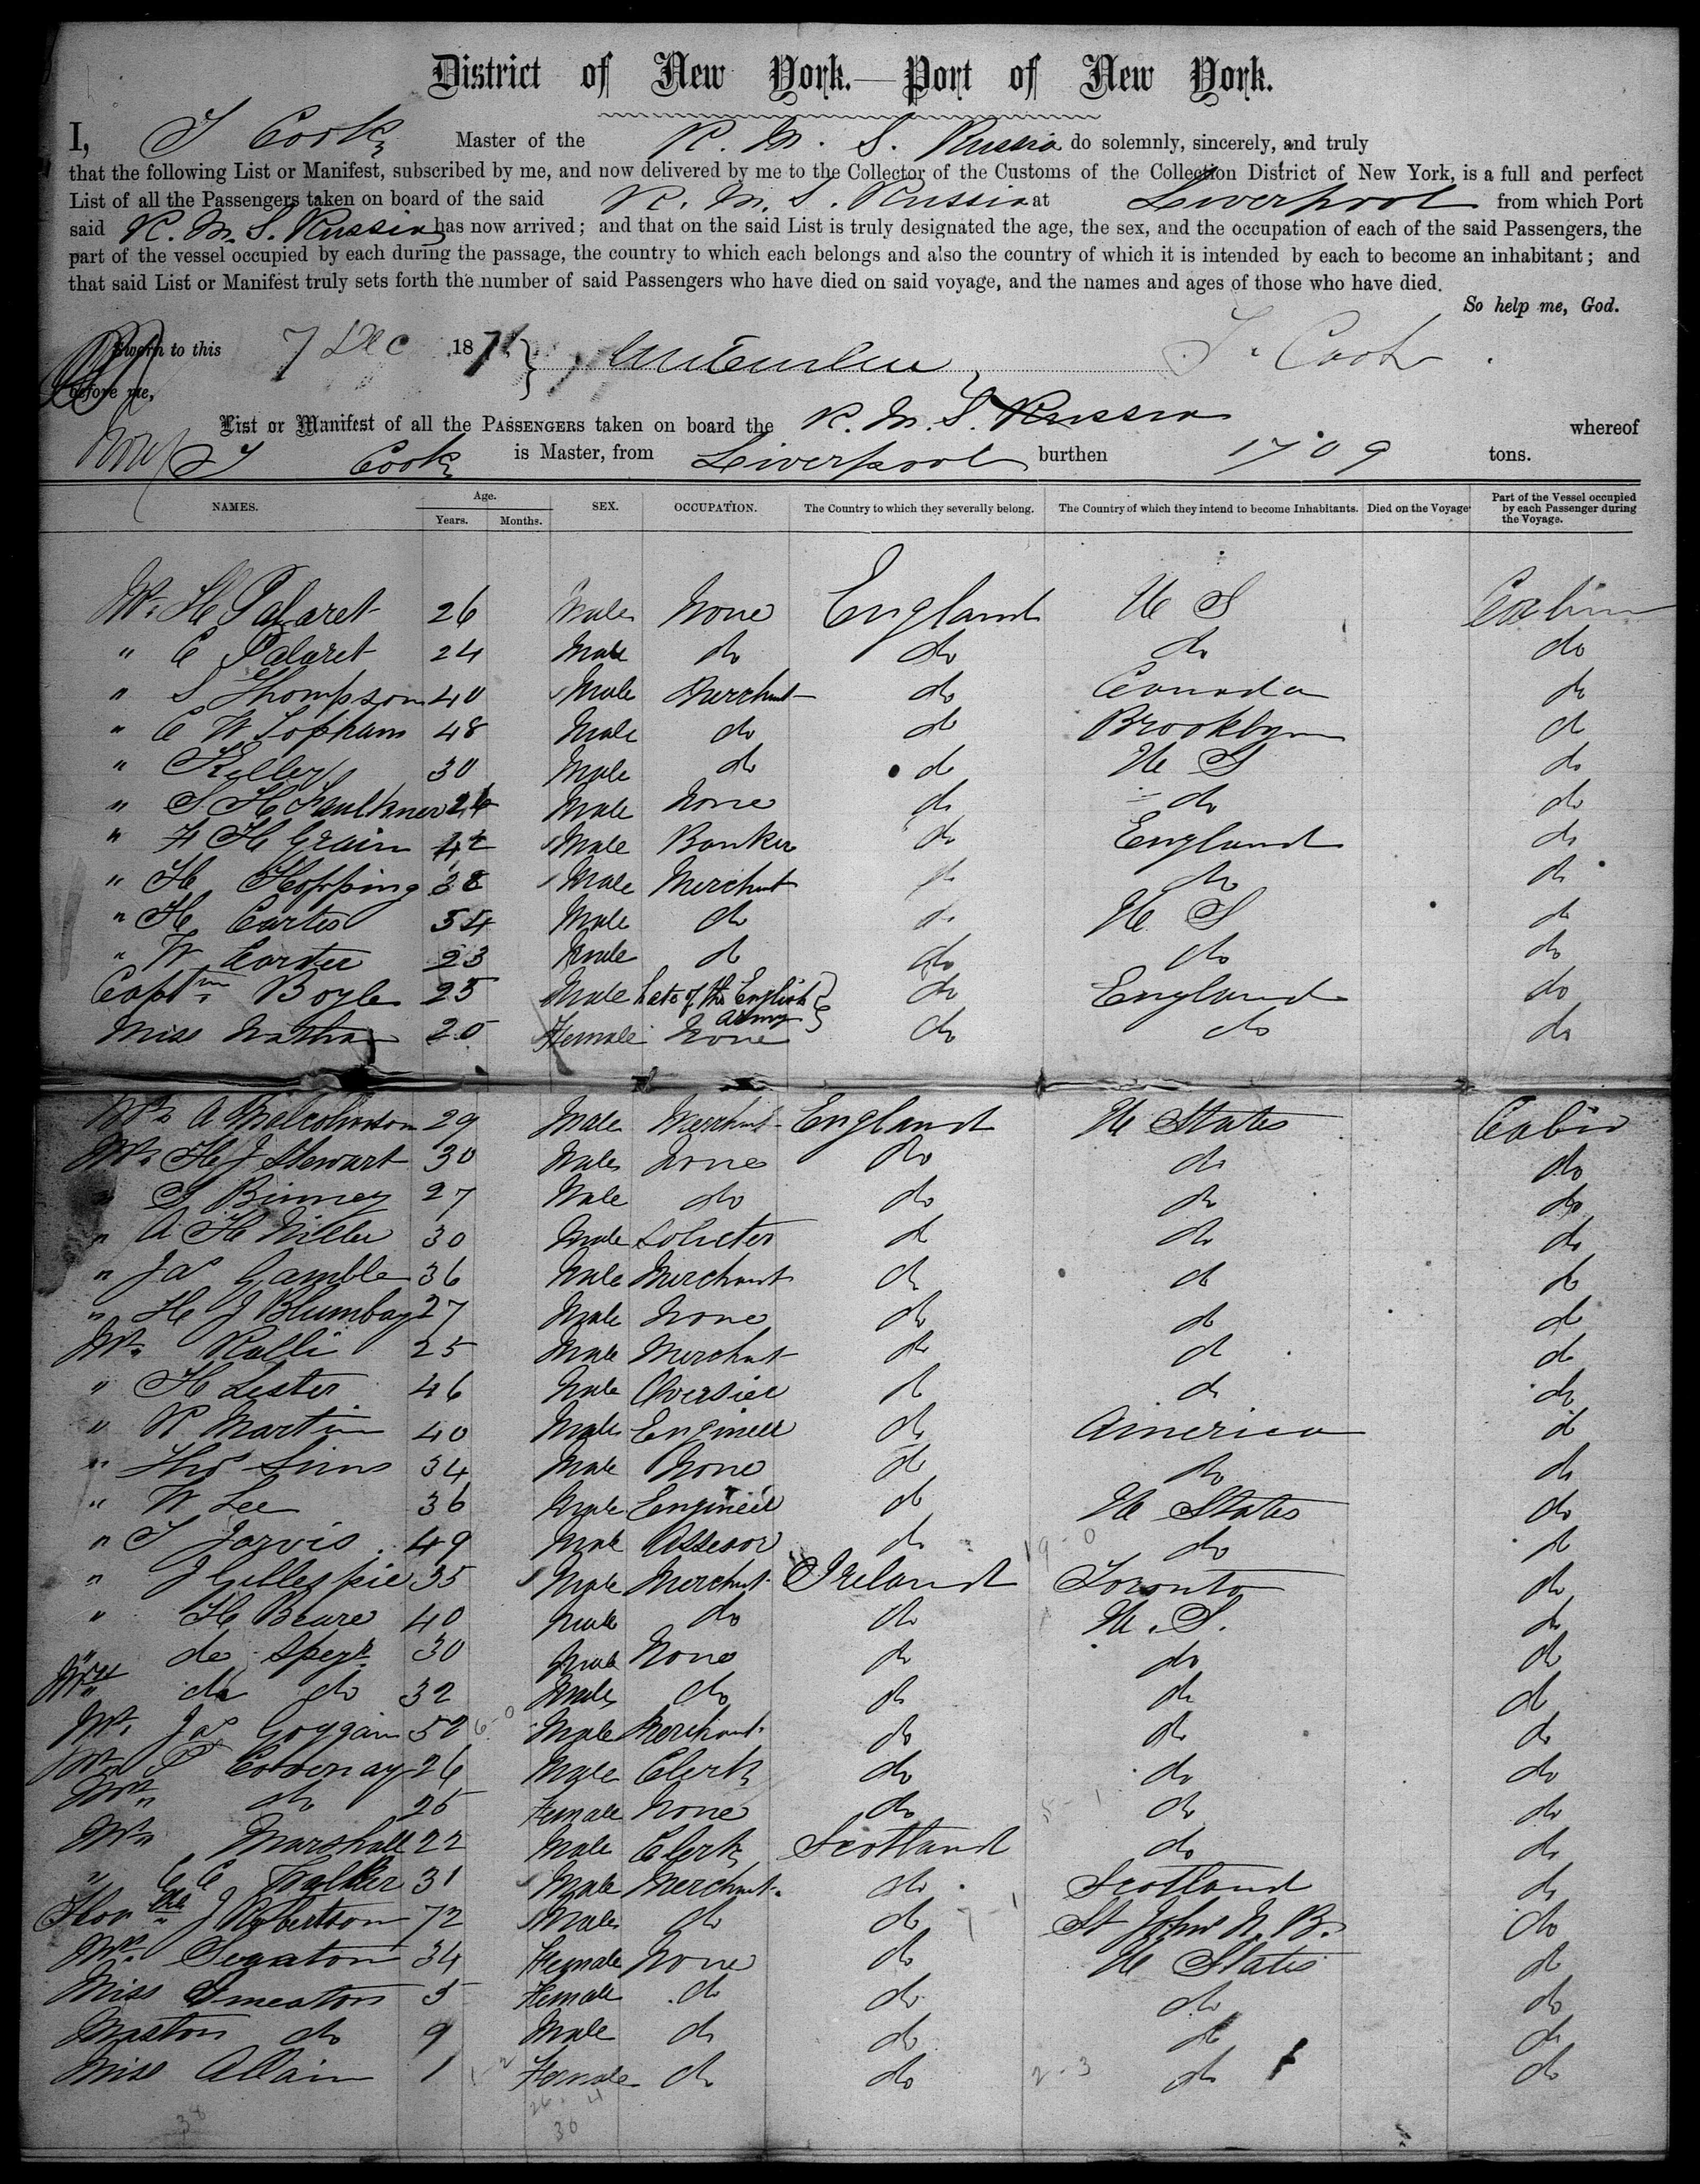 District of New York.—Port of New York.
I, T Cook Master of the R. M. S. Russia do solemnly, sincerely, and truly
that the following List or Manifest, subscribed by me, and now delivered by me to the Collector of the Customs of the Collection District of New York, is a full and perfect
List of all the Passengers taken on board of the said R. M. S. Russia at Liverpool from which Port
said R. M. S. Russia has now arrived; and that on the said List is truly designated the age, the sex, and the occupation of each of the said Passengers, the
part of the vessel occupied by each during the passage, the country to which each belongs and also the country of which it is intended by each to become an inhabitant; and
that said List or Manifest truly sets forth the number of said Passengers who have died on said voyage, and the names and ages of those who have died.
So help me, God.
Sworn to this 7 Dec 187 T. Cook
before me,
List or Manifest of all the PASSENGERS taken on board the R. M. S. Russia whereof
T Cook is Master, from Liverpool burthen 1709 tons.
NAMES. Age. Years. Months. SEX. OCCUPATION. The Country to which they severally belong. The Country of which they intend to become Inhabitants. Died on the Voyage Part of the Vessel occupied by each Passenger during the Voyage.
Mr. H Palaret 26 Male None England U S Cabin
" C Palaret 24 Male do do do do
" S Thompson 40 Male Merchant do Canada do
" C W Topham 48 Male do do Brooklyn do
" Kelley 30 Male do do U S do
" S. H Faulkner 26 Male None do do do
" F H Grain 42 Male Banker do England do
" H Hopping 38 Male Merchant do do do
" H Carter 54 Male do do U S do
" W Carter 23 Male do do do do
Captn Boyle 25 Male Late of the English Army do England do
Miss Nathan 20 Female None do do do
Mr A Malcolmson 29 Male Merchant England U States Cabin
Mr. H J Stewart 30 Male None do do do
" J Binney 27 Male do do do do
" A H Miller 30 Male Soliciter do do do
" Jas Gamble 36 Male Merchant do do do
" H J Blumbay 27 Male None do do do
Mr. Ralli 25 Male Merchant do do do
" H Lester 46 Male Oversier do do do
" R Martin 40 Male Engineer do America do
" Thos Sims 34 Male None do do do
" W Lee 36 Male Engineer do U States do
" T Jarvis 49 Male Assesor do do do
" J Gillespie 35 Male Merchant Ireland Toronto do
" H Beare 40 Male do do U. S. do
" de Speyr 30 Male None do do do
" do do 32 Male do do do do
Mr. Jas Goggin 52 Male Merchant do do do
Mr. P Cotvenay 26 Male Clerk do do do
Mrs " do 25 Female None do do do
Mr " Marshall 22 Male Clerk Scotland do do
" C C Walker 31 Male Merchant do Scotland do
Honble J Robertson 72 Male do do St Johns N. B. do
Mrs. Seaton 34 Female None do U States do
Miss Smeaton 5 Female do do do do
Master do 9 Male do do do do
Miss Allain 1 Female do do do do
38
36